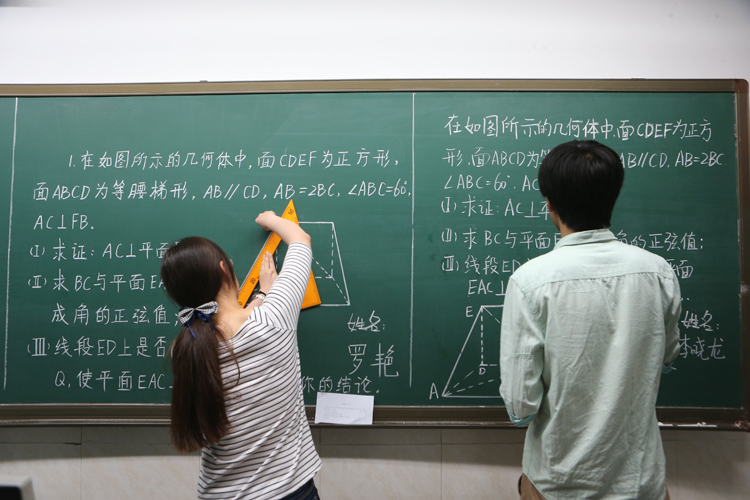 1.在如图所示的几何体中,面CDEF为正方形,
面ABCD为等腰梯形,AB∥CD,AB=2BC,∠ABC=60°,
AC⊥FB.
(Ⅰ)求证:AC⊥平面
(Ⅱ)求BC与平面EA
成角的正弦值
(Ⅲ)线段ED上是否
Q,使平面EAC 你的结论.
姓名:
罗艳
在如图所示的几何体中,面CDEF为正方
形,面ABCD为 AB∥CD,AB=2BC
∠ABC=60°.AC
(Ⅰ)求证:AC⊥平
(Ⅱ)求BC与平面 角的正弦值;
(Ⅲ)线段ED 平面
EAC⊥
E
D
A
姓名:
李晓龙